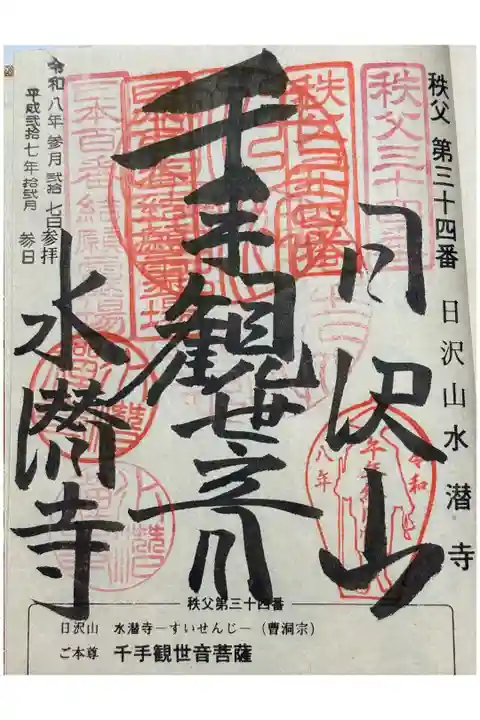 秩父 第三十四番 日沢山水潜寺
秩父三十四番
日沢山
千手観世音
水潜寺
日本百番結願霊場
令和八年参月弐拾七日参拝
平成弐拾七年拾弐月 参日
令和
八年
秩父第三十四番
日沢山 水潜寺―すいせんじ―(曹洞宗)
ご本尊 千手観世音菩薩